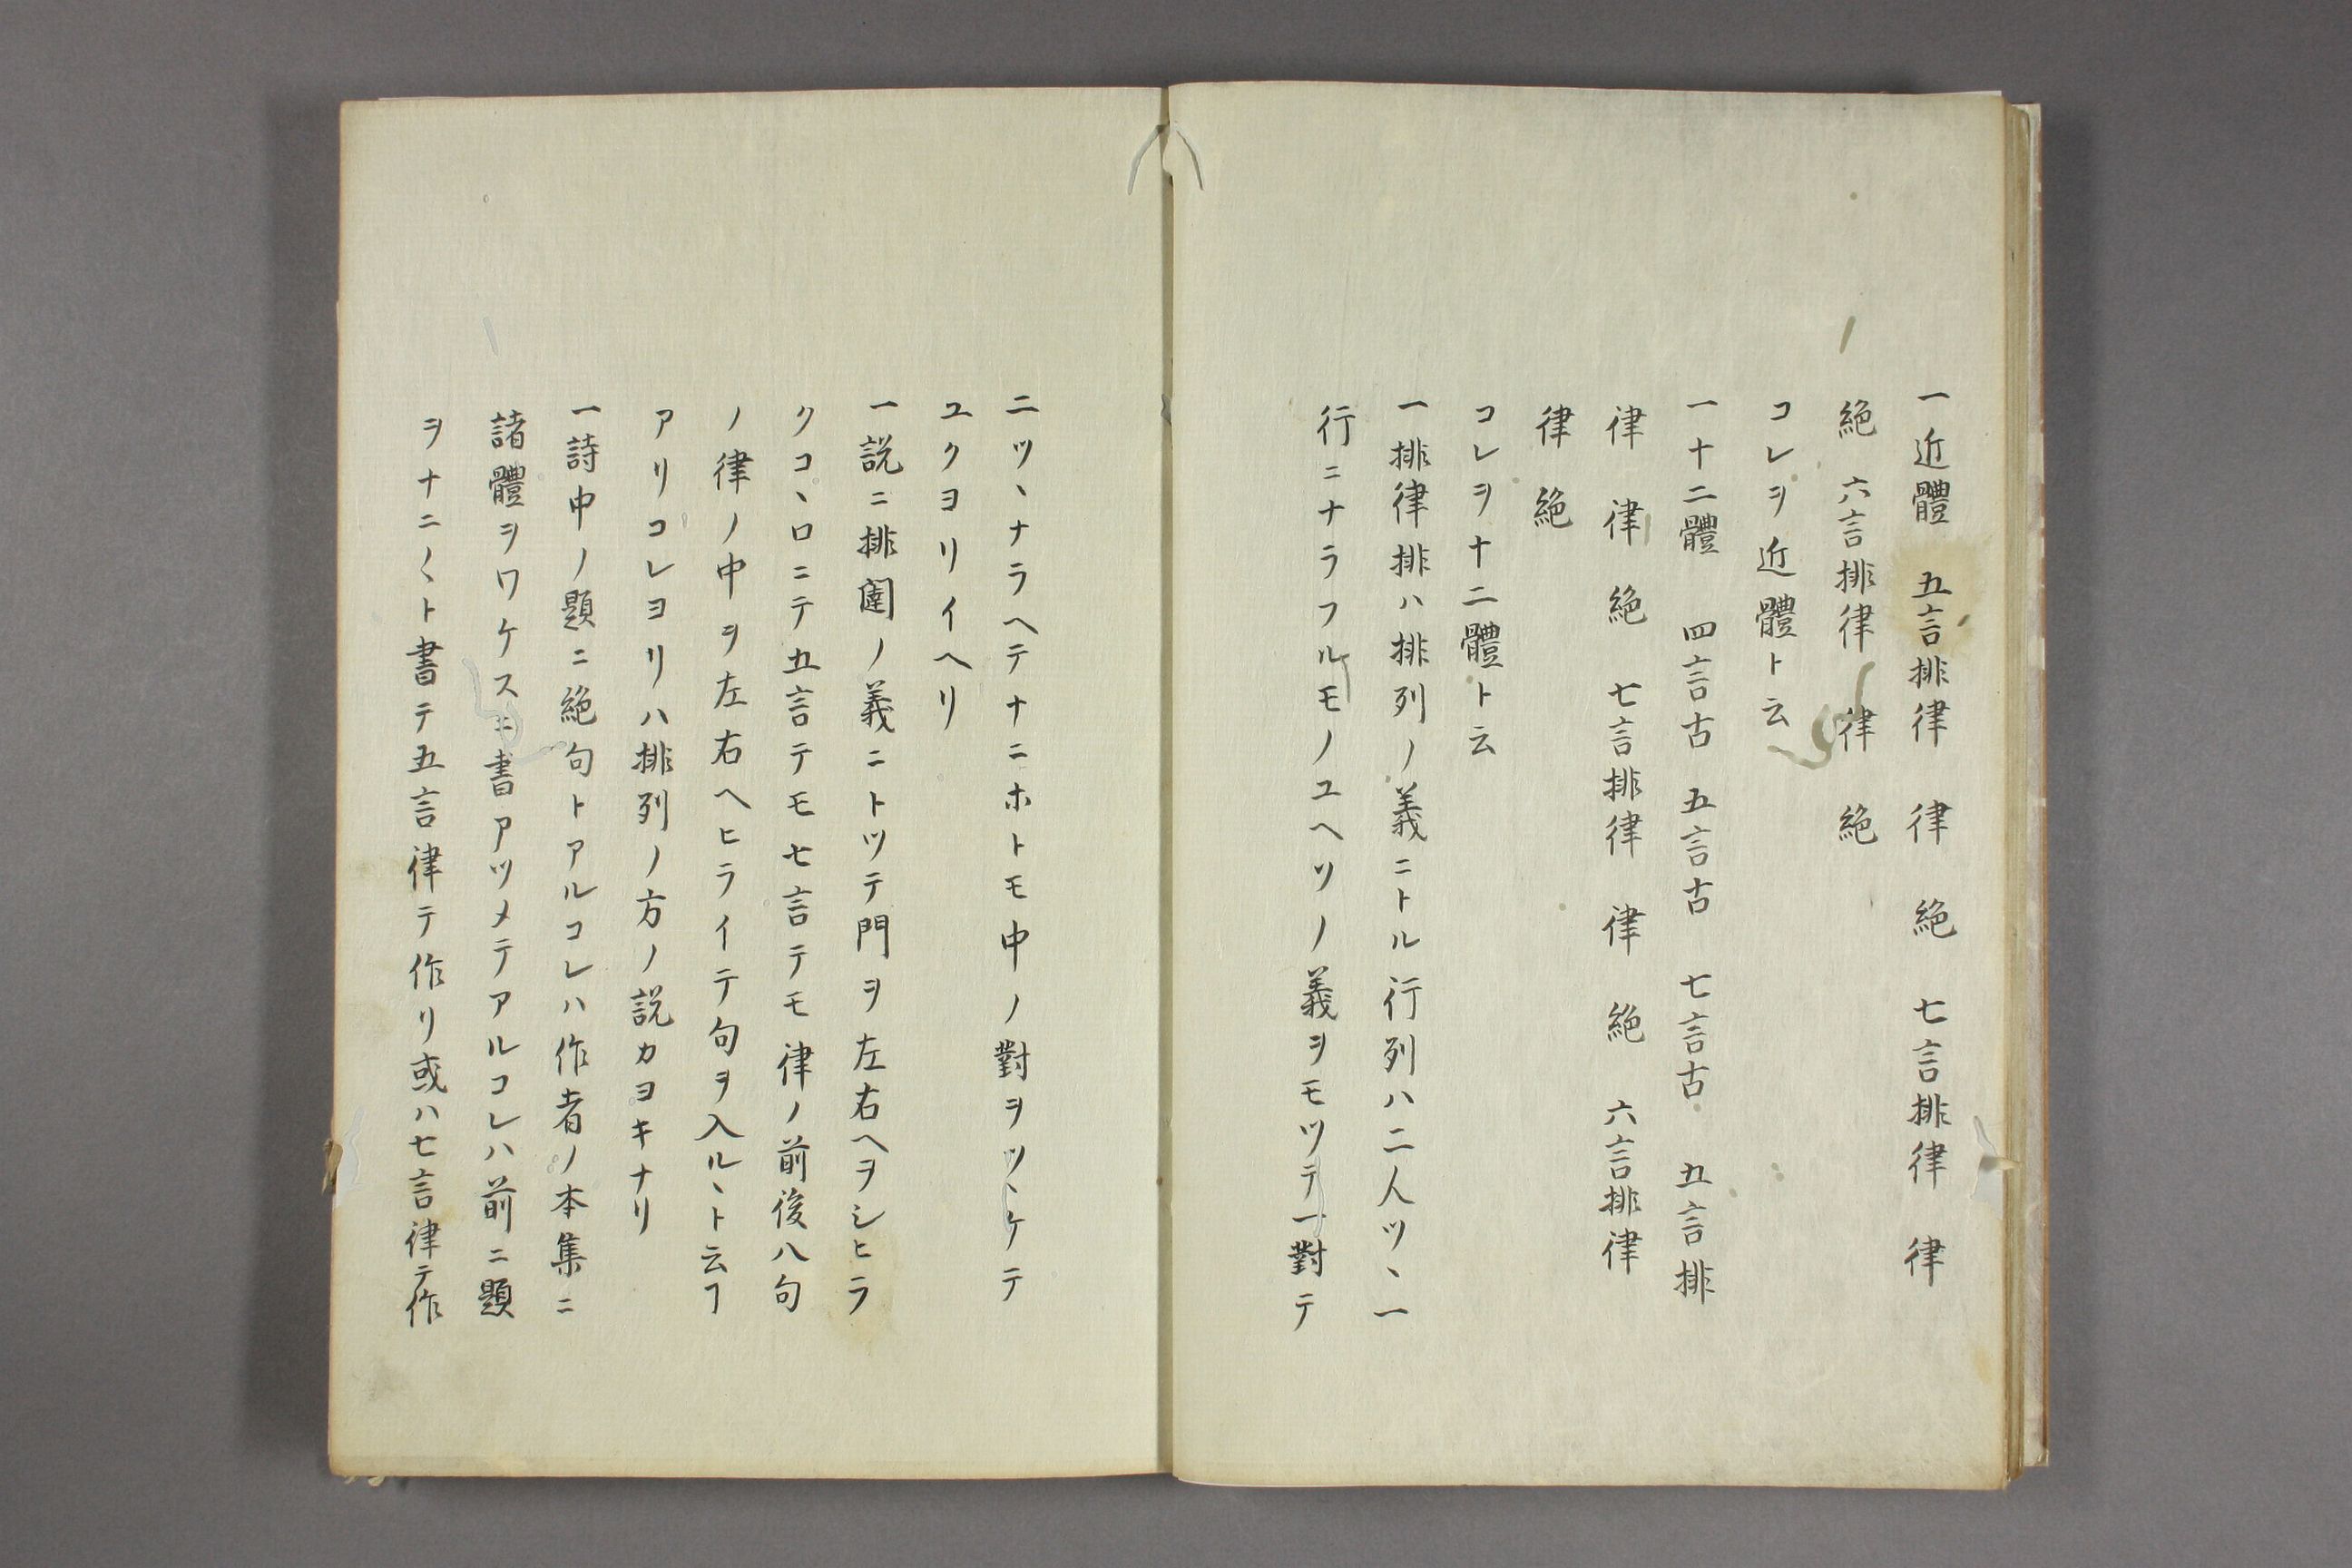 一近體　五言排律　律　絶　七言排律　律
絶　六言排律　律　絶
コレヲ近體ト云
一十二體　四言古　五言古　七言古　五言排
律　律　絶　七言排律　律　絶　六言排律
律　絶
コレヲ十二體ト云
一排律排ハ排列ノ義ニトル行列ハ二人ツヽ一
行ニナラフルモノユヘソノ義ヲモツテ一對テ
二ツヽナラヘテナニホトモ中ノ對ヲツヽケテ
ユクヨリイヘリ
一説ニ排闥ノ義ニトツテ門ヲ左右ヘヲシヒラ
クコヽロニテ五言テモ七言テモ律ノ前後八句
ノ律ノ中ヲ左右ヘヒライテ句ヲ入ルヽト云ヿ
アリコレヨリハ排列ノ方ノ説カヨキナリ
一詩中ノ題ニ絶句トアルコレハ作者ノ本集ニ
諸體ヲワケスニ書アツメテアルコレハ前ニ題
ヲナニ〱ト書テ五言律テ作リ或ハ七言律テ作